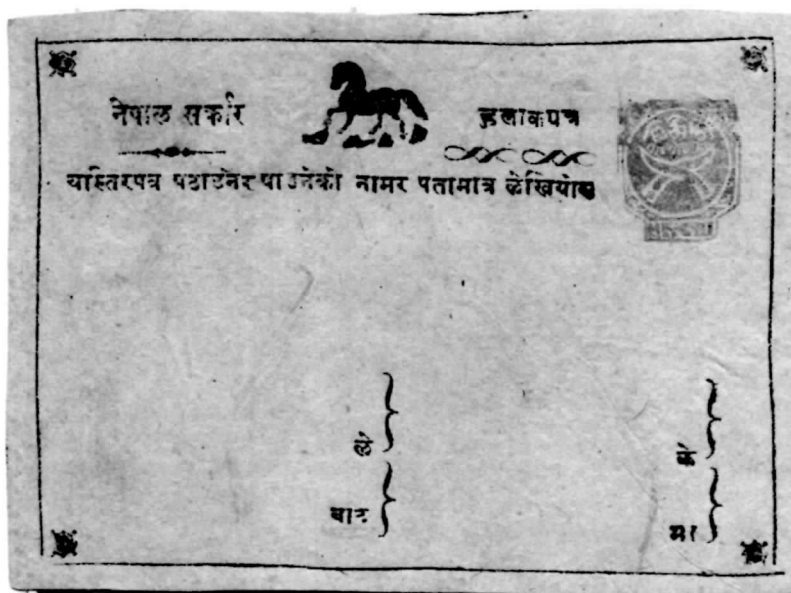 नेपाल सर्कार हुलाकपत्र
यास्तिरपत्र पठाउनेर पाउनेको नामर पतामात्र लेखियोस
ले के
बाट मा